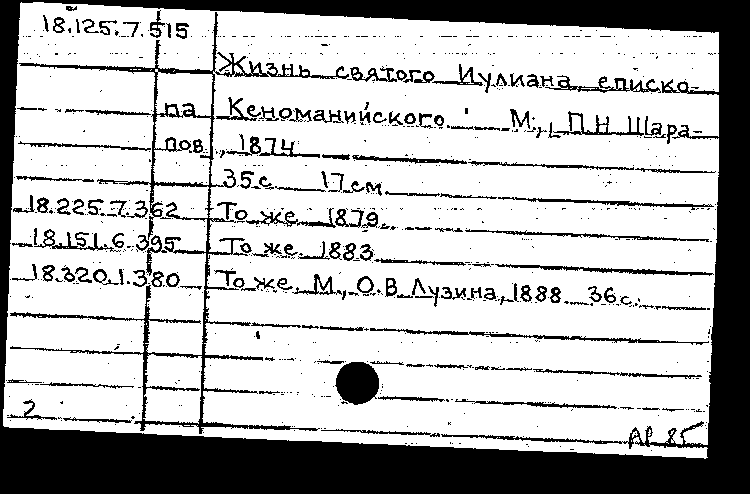 18.125.7.515
Жизнь святого Иулиана, еписко-
па Кеноманийского М., П.Н. Шара-
пов, 1874
35с. 17см.
18.225.7.362 То же 1879.
18.151.6.395 То же. 1883
18.320.1.380 То же. М., О.В. Лузина, 1888 36 с.
2
АР 85